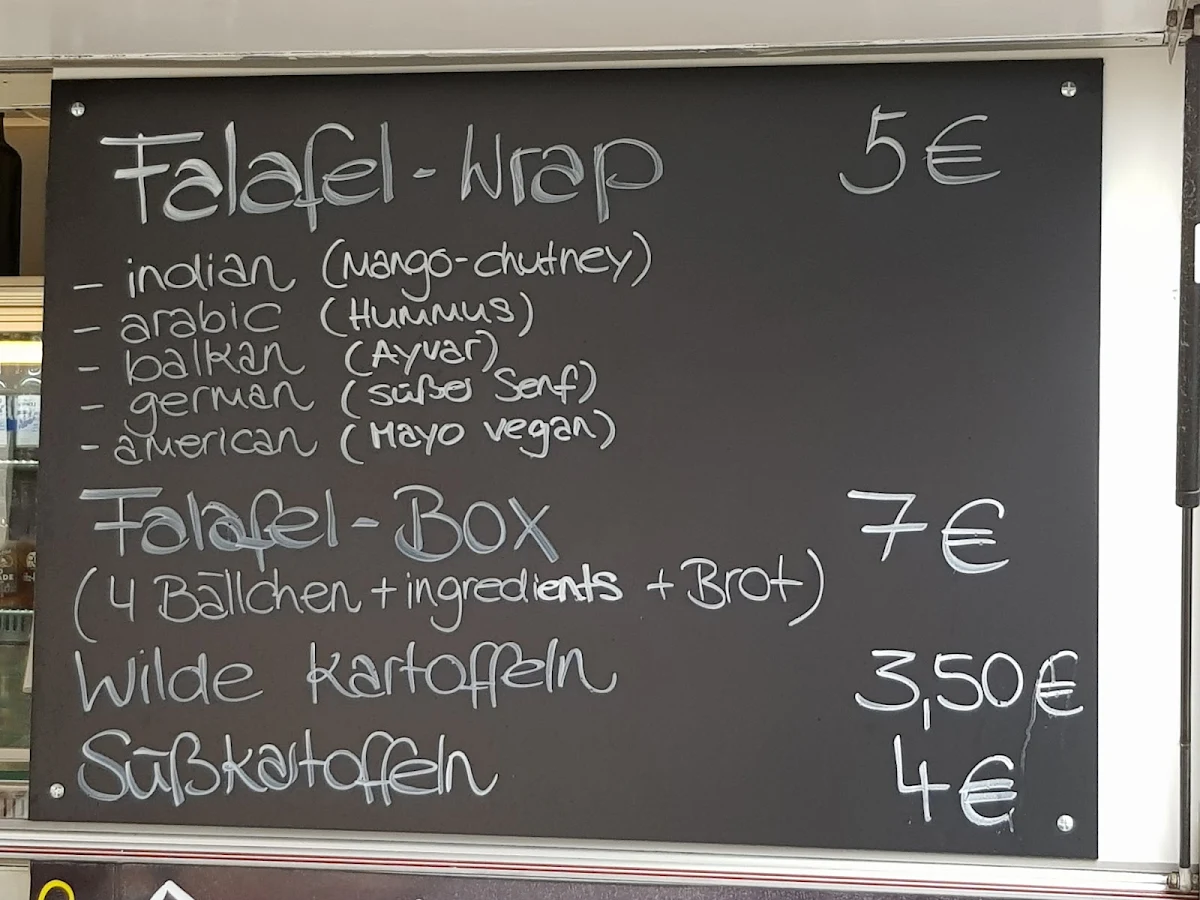 Falafel-Wrap 5€
- indian (Mango-chutney)
- arabic (Hummus)
- balkan (Ayvar)
- german (süßer Senf)
- american (Mayo vegan)
Falafel-Box 7€
(4 Bällchen + ingredients + Brot)
Wilde Kartoffeln 3,50€
Süßkartoffeln 4€